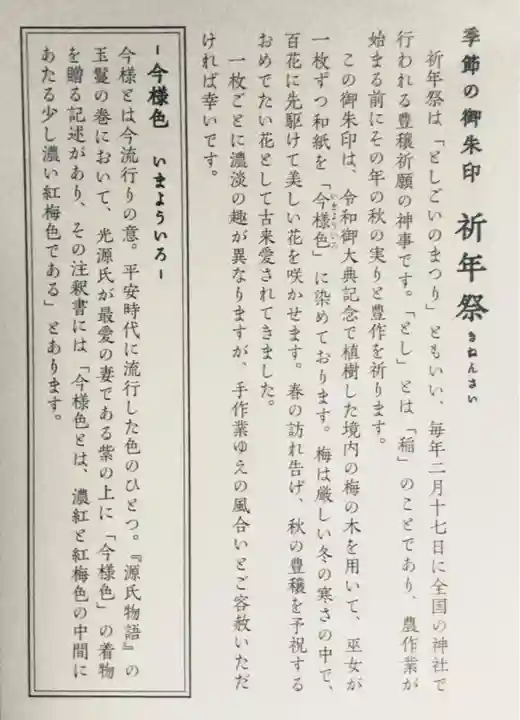 季節の御朱印 祈年祭 きねんさい
祈年祭は「としごいのまつり」ともいい、毎年二月十七日に全国の神社で
行われる豊穣祈願の神事です。「とし」とは「稲」のことであり、農作業が
始まる前にその年の秋の実りと豊作を祈ります。
この御朱印は、令和御大典記念で植樹した境内の梅の木を用いて、巫女が
一枚ずつ和紙を「今様色」に染めております。梅は厳しい冬の寒さの中で、
いまよういろ
百花に先駆けて美しい花を咲かせます。春の訪れ告げ、秋の豊穣を予祝する
おめでたい花として古来愛されてきました。
一枚ごとに濃淡の趣が異なりますが、手作業ゆえの風合いとご容赦いただ
ければ幸いです。
ー今様色 いまよういろー
今様とは今流行りの意。平安時代に流行した色のひとつ。『源氏物語』の
玉鬘の巻において、光源氏が最愛の妻である紫の上に「今様色」の着物
を贈る記述があり、その注釈書には「今様色とは、濃紅と紅梅色の中間に
あたる少し濃い紅梅色である」とあります。